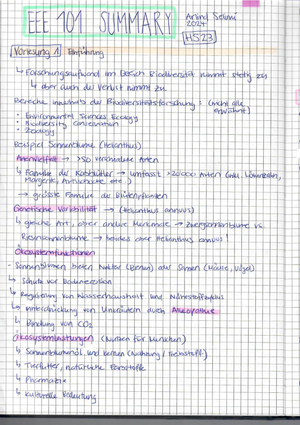 EEE 101 SUMMARY
2024
HS23
Vorlesung 1 Einführung
↳ Forschungsaufwand im Bereich Biodiversität nimmt stetig zu
↳ aber auch der Verlust nimmt zu.
Bereiche innerhalb der Biodiversitätsforschung: (nicht alle erwähnt)
• Environmental Sciences, Ecology
• Biodiversity conservation
• Zoology
Beispiel Sonnenblume (Helianthus)
Artenvielfalt → >50 verschiedene Arten
↳ Familie der Korbblütler → umfasst >20000 Arten (inkl. Löwenzahn,
Margerite, Artischocke etc.)
→ grösste Familie der Blütenpflanzen
Genetische Variabilität → (Helianthus annuus)
↳ gleiche Art, aber andere Merkmale → Zwergsonnenblume vs.
Riesensonnenblume → beides aber Helianthus annuus!
Ökosystemfunktionen
- Sonnenblumen bieten Nektar (Bienen) und Samen (Mäuse, Vögel)
↳ Schutz vor Bodenerosion
↳ Regulierung von Wasserhaushalt und Nährstoffzyklus
↳ Unterdrückung von Unkräutern durch Allelopathie
↳ Bindung von CO2
Ökosystemleistungen (Nutzen für Menschen)
↳ Sonnenblumenöl und Kerne (Nahrung / Treibstoff)
↳ Tierfutter, natürliche Farbstoffe
↳ Pharmazie
↳ kulturelle Bedeutung